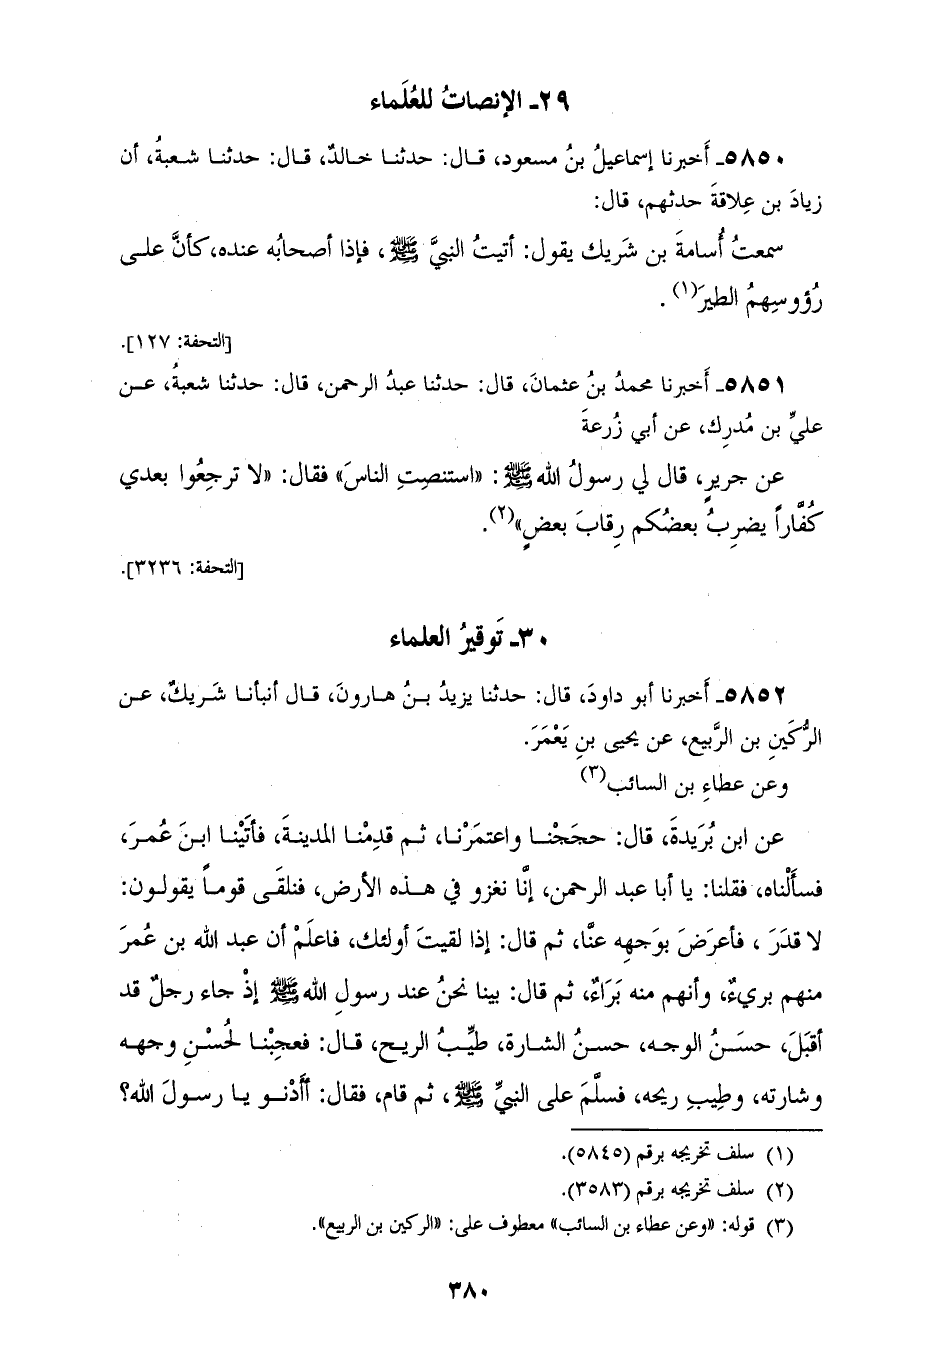 ٢٩ـ الإنصاتُ للعُلَماء
٥٨٥٠ـ أَخبرنا إسماعيلُ بنُ مسعود، قال: حدثنا خالدٌ، قال: حدثنا شعبةُ، أن
زيادَ بن عِلاقةَ حدثهم، قال:
سمعتُ أُسامةَ بن شَريك يقول: أتيتُ النبيَّ ﷺ، فإذا أصحابُه عنده، كأنَّ على
رُؤوسِهمُ الطيرَ(١).
[التحفة: ١٢٧].
٥٨٥١ـ أَخبرنا محمدُ بنُ عثمانَ، قال: حدثنا عبدُ الرحمن، قال: حدثنا شعبةُ، عن
عليِّ بن مُدرِك، عن أبي زُرعةَ
عن جريرٍ، قال لي رسولُ الله ﷺ: «استنصِتِ الناسَ» فقال: «لا ترجِعُوا بعدي
كُفَّاراً يضرِبُ بعضُكم رِقابَ بعضٍ»(٢).
[التحفة: ٣٢٣٦].
٣٠ـ تَوقيرُ العلماء
٥٨٥٢ـ أَخبرنا أبو داودَ، قال: حدثنا يزيدُ بنُ هارونَ، قال أنبأنا شَريكٌ، عن
الرُّكَينِ بن الرَّبيع، عن يحيى بنِ يَعْمَرَ.
وعن عطاءِ بن السائب(٣)
عن ابن بُرَيدةَ، قال: حجَجْنا واعتمَرْنا، ثم قدِمْنا المدينةَ، فأتَيْنا ابنَ عُمرَ،
فسألْناه، فقلنا: يا أبا عبد الرحمن، إنَّا نغزو في هذه الأرض، فنلقَى قوماً يقولون:
لا قدَرَ، فأعرَضَ بوَجهِه عنَّا، ثم قال: إذا لقيتَ أولئك، فاعلَمْ أن عبد الله بن عُمرَ
منهم بريءٌ، وأنهم منه بَرَاءٌ، ثم قال: بينا نحنُ عند رسولِ الله ﷺ إذْ جاء رجلٌ قد
أقبَلَ، حسَنُ الوجه، حسنُ الشارة، طيِّبُ الريح، قال: فعجِبْنا لحُسْنِ وجهه
وشارته، وطِيبِ ريحه، فسلَّمَ على النبيِّ ﷺ، ثم قام، فقال: أأَدْنو يا رسولَ الله؟
(١) سلف تخريجه برقم (٥٨٤٥).
(٢) سلف تخريجه برقم (٣٥٨٣).
(٣) قوله: «وعن عطاء بن السائب» معطوف على: «الركين بن الربيع».
٣٨٠